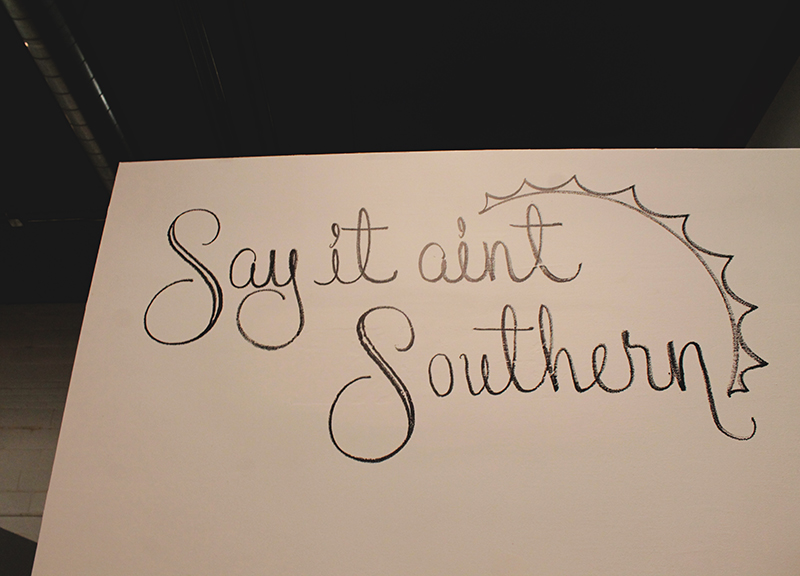 Say it aint
Southern